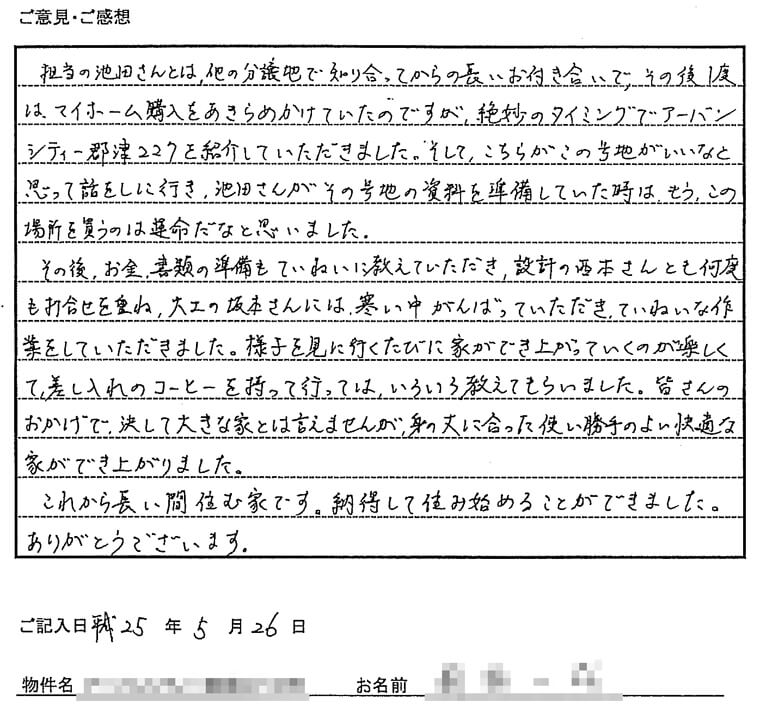 ご意見・ご感想
担当の池田さんとは、他の分譲地で知り合ってからの長いお付き合いで、その後1度
は、マイホーム購入をあきらめかけていたのですが、絶妙のタイミングでアーバン
シティー郡津227を紹介していただきました。そして、こちらがこの号地がいいなと
思って話をしに行き、池田さんがその号地の資料を準備していた時は、もう、この
場所を買うのは運命だなと思いました。
その後、お金、書類の準備もていねいに教えていただき、設計の西本さんとも何度
も打合せを重ね、大工の坂本さんには、寒い中がんばっていただき、ていねいな作
業をしていただきました。様子を見に行くたびに家ができ上がっていくのが楽しく
て、差し入れのコーヒーを持って行っては、いろいろ教えてもらいました。皆さんの
おかげで、決して大きな家とは言えませんが、身の丈に合った使い勝手のよい快適な
家ができ上がりました。
これから長い間住む家です。納得して住み始めることができました。
ありがとうございます。
ご記入日 平成25年5月26日
物件名 お名前